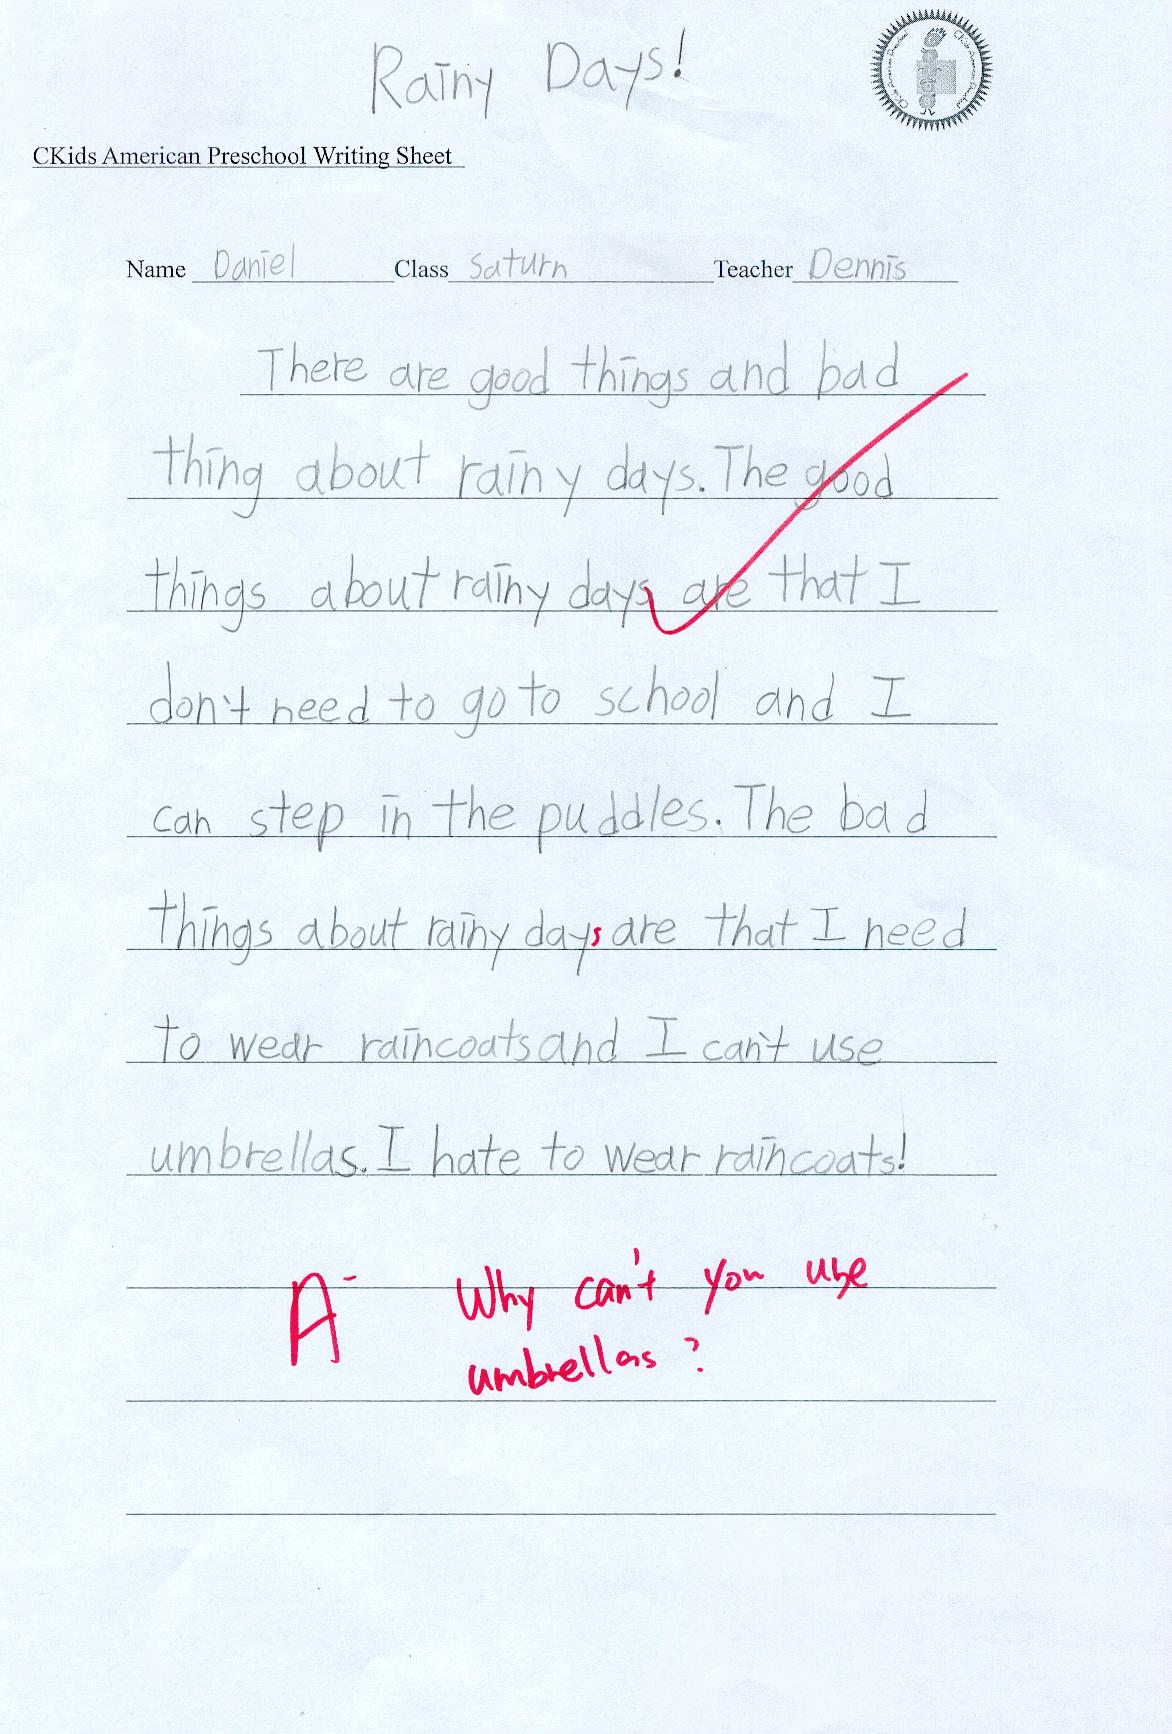 Rainy Days!
CKids American Preschool Writing Sheet
Name Daniel Class Saturn Teacher Dennis
There are good things and bad
thing about rainy days. The good
things about rainy days are that I
don't need to go to school and I
can step in the puddles. The bad
things about rainy days are that I need
to wear raincoats and I can't use
umbrellas. I hate to wear raincoats!
A- Why can't you use
umbrellas?